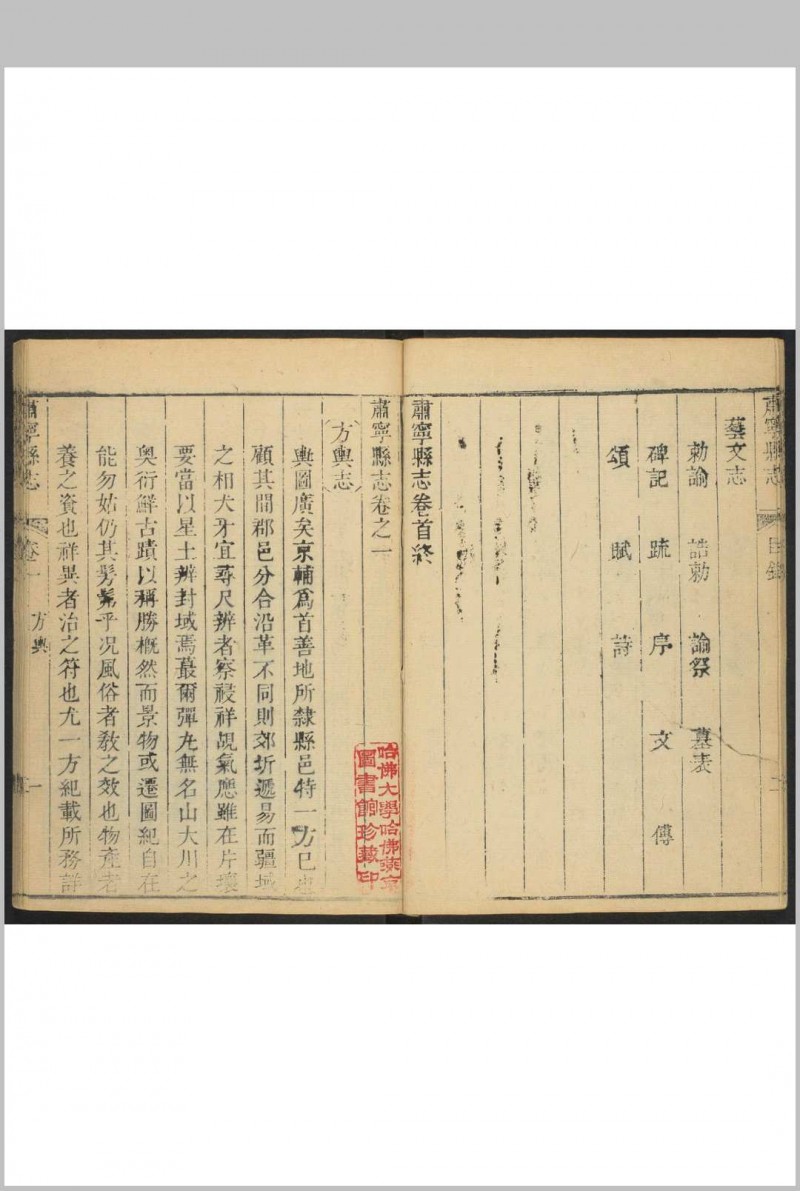 肅寧縣志 目錄 二
藝文志
勅諭 誥勅 諭祭 墓表
碑記 疏 序 文 傳
頌 賦 詩
肅寧縣志卷首終
肅寧縣志卷之一
方輿志
輿圖廣矣京輔爲首善地所隸縣邑特一方巳也
顧其間郡邑分合沿革不同則郊圻遞易而疆域
之相犬牙宜尋尺辨者察祲祥覘氣應雖在片壤
要當以星土辨封域焉蕞爾彈丸無名山大川之
奥衍鮮古蹟以稱勝概然而景物或遷圖紀自在
能勿姑仍其髣髴乎况風俗者敎之效也物產者
養之資也祥異者治之符也尤一方紀載所務詳
肅寧縣志 卷一 方輿 一
哈佛大學哈佛燕京
圖書館珍藏印